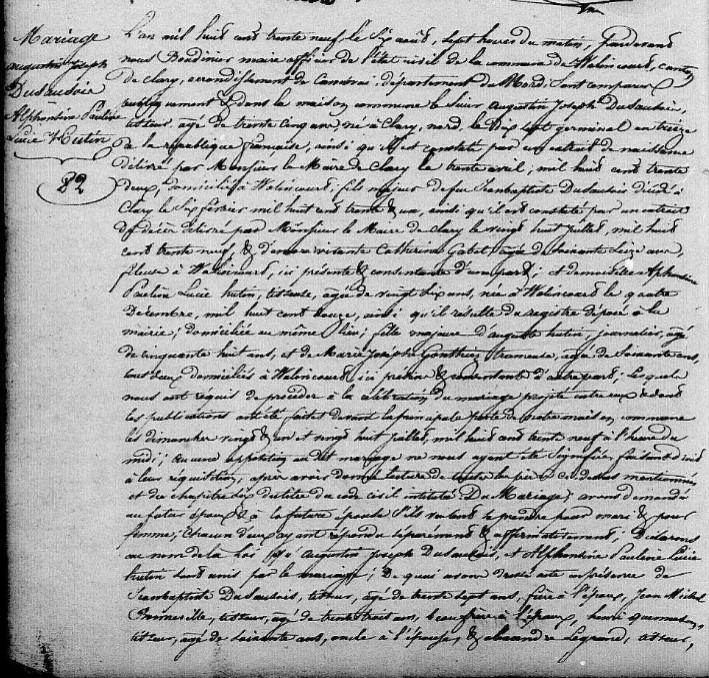 Mariage
Augustin Joseph
Dusautoir
&
Alphonsine Pauline
Lucie Hutin
82
L'an mil huit cent trente neuf le Six août, sept heures du matin, Pardevant
nous Boudinier maire officier de l'état civil de la commune de Walincourt, canton
de Clary, arrondissement de Cambrai, département du Nord; Sont comparus
publiquement & dans la maison commune le Sieur Augustin Joseph Dusautoir,
tisseur, agé de trente cinq ans, né à Clary, nord, le Dix sept germinal an treize
de la république française, ainsi qu'il est constaté par un extrait de naissance
délivré par Monsieur le Maire de Clary le trente avril, mil huit cent trente
deux, domicilié à Walincourt; fils majeur de feu Jeanbaptiste Dusautoir décédé à
Clary le Six février mil huit cent trente & un, ainsi qu'il est constaté par un extrait
de décès délivré par Monsieur le Maire de Clary le vingt huit juillet, mil huit
cent trente neuf, & d'encore vivante Catherine Gabet, agée de Soixante Seize ans,
fileuse à Walincourt, ici présente & consentante d'une part; et demoiselle Alphonsine
Pauline Lucie hutin, tisseuse, agée de vingt six ans, née à Walincourt le quatre
Décembre, mil huit cent douze, ainsi qu'il résulte du registre déposé à la
mairie; domiciliée au même lieu; fille majeure d'auguste hutin, journalier, agé
de cinquante huit ans, et de Marie Joseph Gonthiez, trameuse, agée de Soixante ans,
tous deux domiciliés à Walincourt, ici présens & consentant d'autre part; Lesquels
nous ont requis de procéder à la célébration du mariage projeté entre eux & dont
les publications ont été faites devant la principale porte de notre maison commune
les dimanches vingt & un et vingt huit juillet, mil huit cent trente neuf à l'heure du
midi; aucune opposition au dit mariage ne nous ayant été Signifiée, faisant droit
à leur réquisition, après avoir donné lecture de toutes les pièces ci-dessus mentionnées
et du chapitre six du titre du code civil intitulé Du Mariage, avons demandé
au futur époux & à la future épouse S'ils veulent se prendre pour mari & pour
femme; Chacun d'eux ayant répondu séparément & affirmativement; Déclarons
au nom de la Loi que augustin Joseph Dusautoir, et Alphonsine Pauline Lucie
hutin sont unis par le mariage; De quoi avons dressé acte en présence de
Jeanbaptiste Dusautoir, tisseur, agé de trente sept ans, frère à l'époux, Jean Michel
Bonneville, tisseur, agé de trente trois ans, beau frère à l'époux, henri
tisseur, agé de soixante ans, oncle à l'épouse, & Legrand, tisseur,